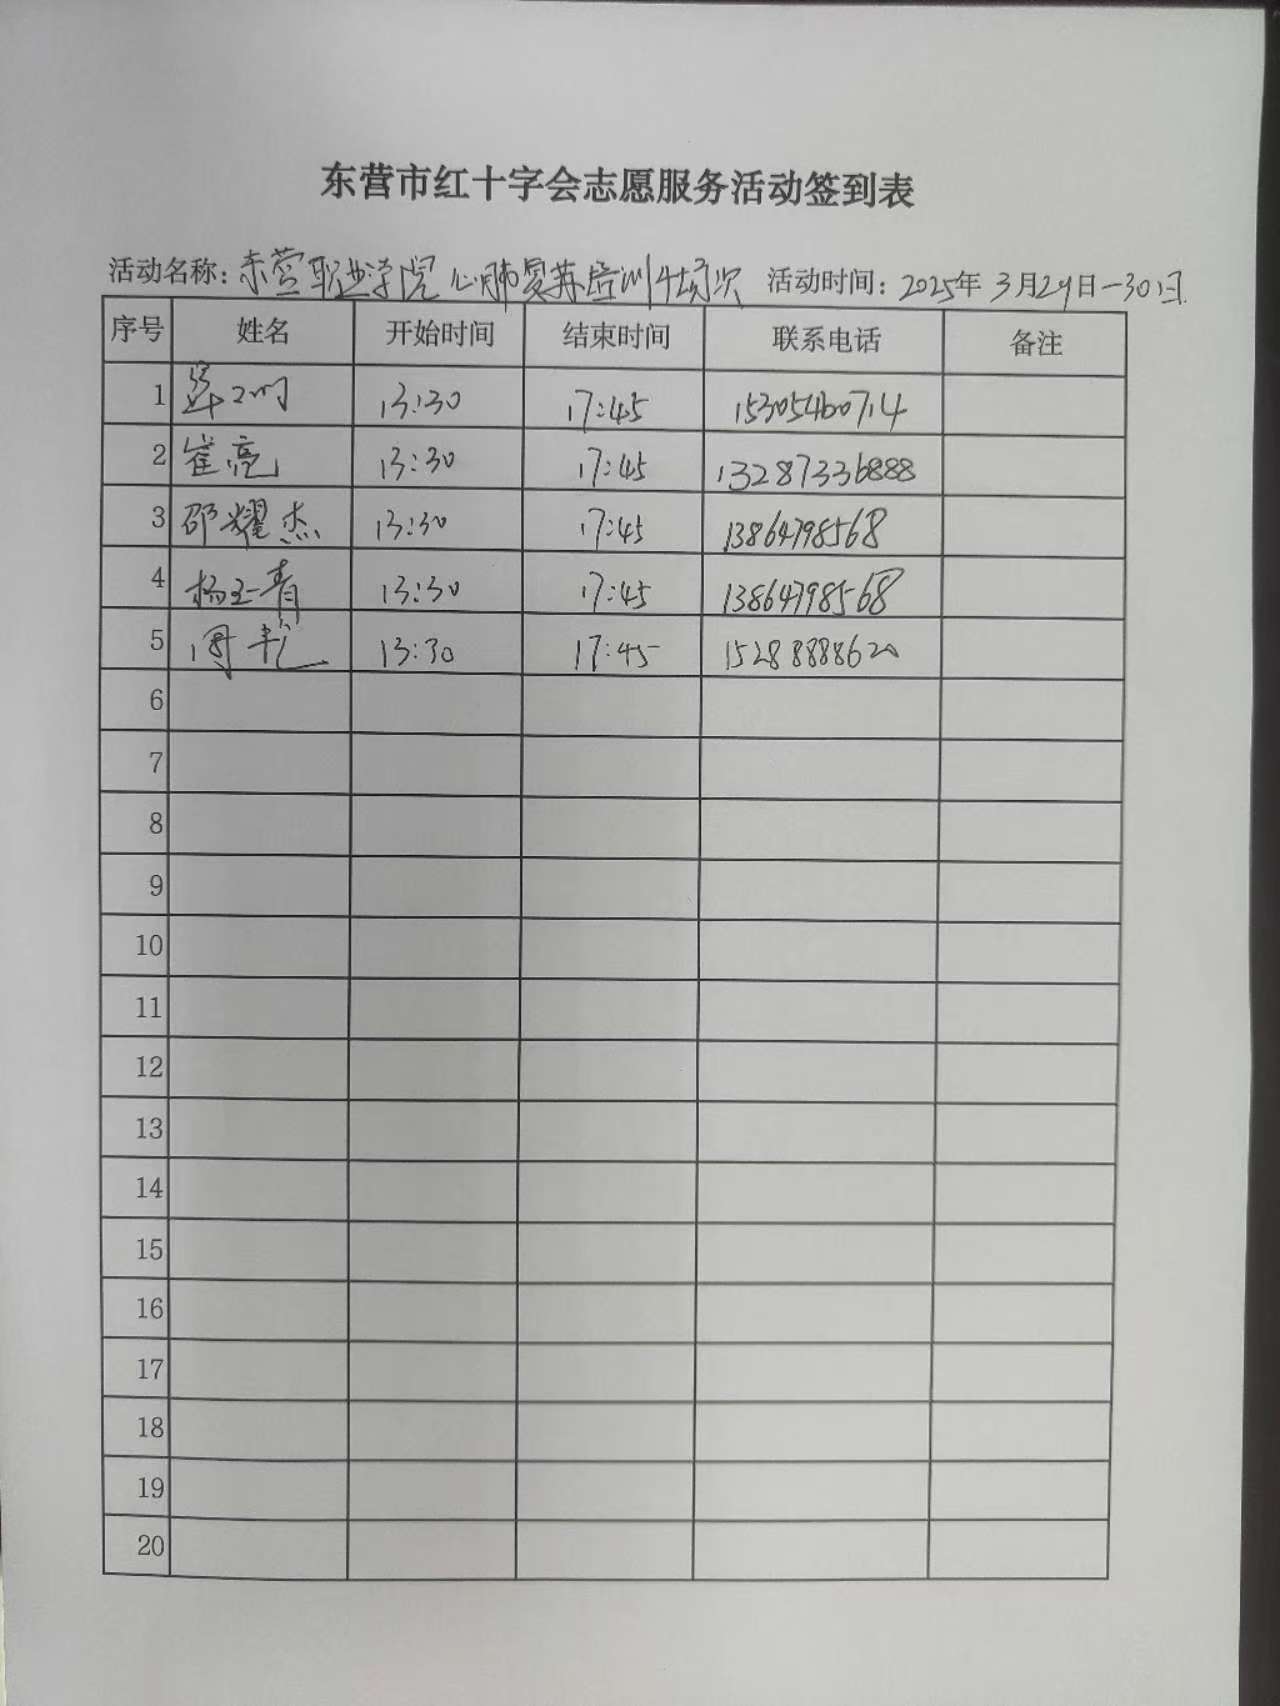 东营市红十字会志愿服务活动签到表
活动名称：东营职业学院心肺复苏培训4场次 活动时间：2025年3月29日—30日
序号 姓名 开始时间 结束时间 联系电话 备注
1 13:30 17:45 15305460714
2 崔亮 13:30 17:45 13287336888
3 邵耀杰 13:30 17:45 13864798568
4 杨玉青 13:30 17:45 13864798568
5 周艳 13:30 17:45 15288888620
6
7
8
9
10
11
12
13
14
15
16
17
18
19
20